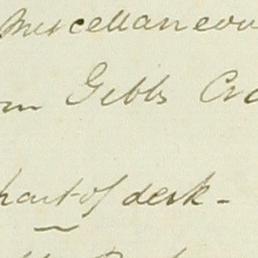 Miscellaneou
m Gibbs Cra
part of desk -